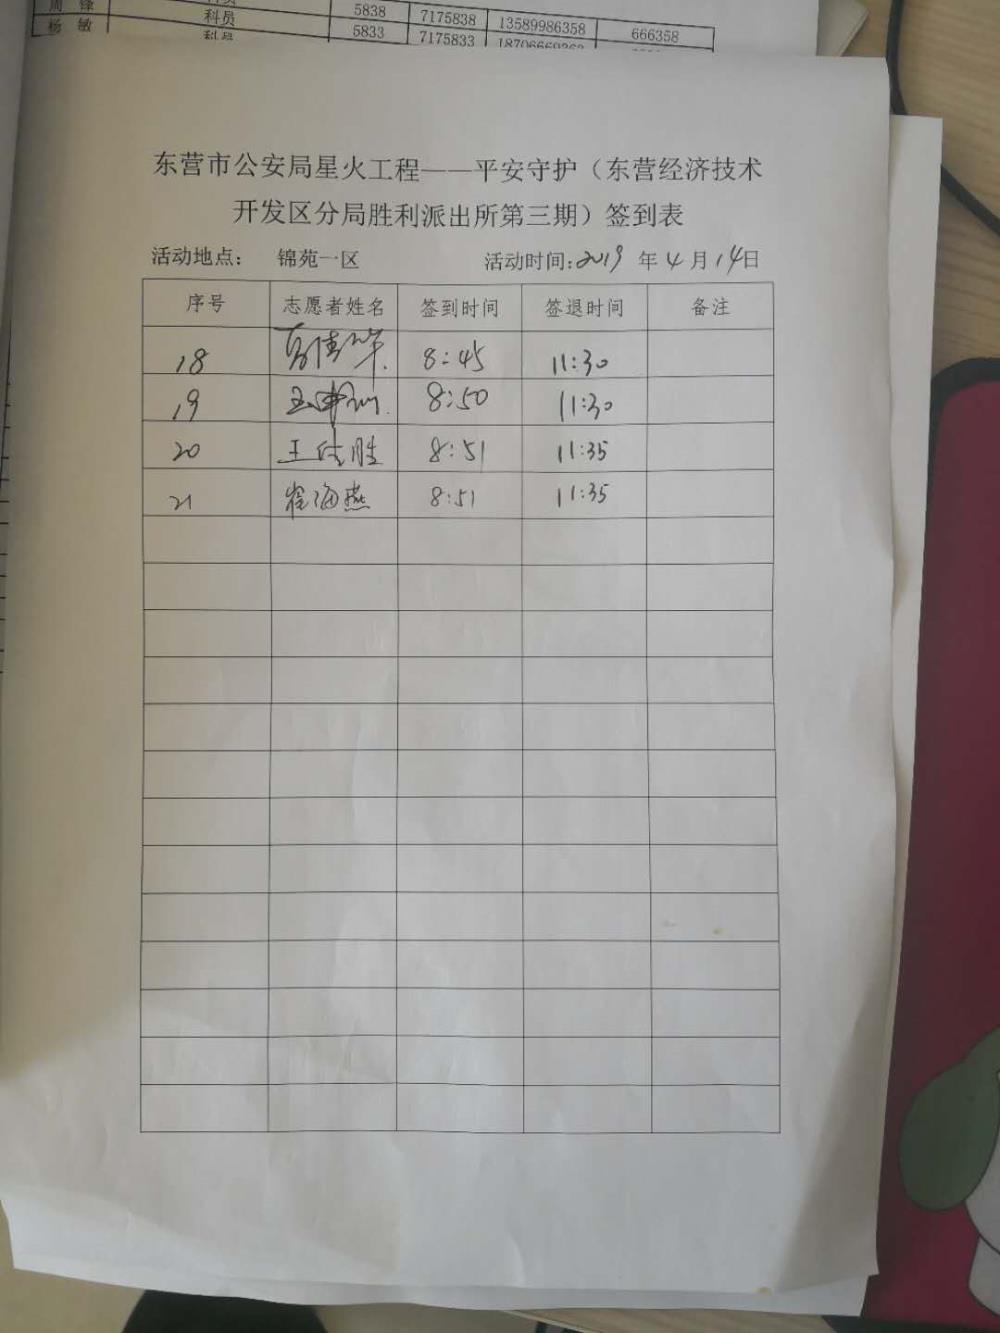 周 锋
科员
5838 7175838 13589986358 666358
杨 敏
科员
5833 7175833
东营市公安局星火工程——平安守护（东营经济技术
开发区分局胜利派出所第三期）签到表
活动地点： 锦苑一区 活动时间:2019 年 4 月 14日
序号 志愿者姓名 签到时间 签退时间 备注
18 8:45 11:30
19 8:50 11:30
20 王 胜 8:51 11:35
21 崔海燕 8:51 11:35